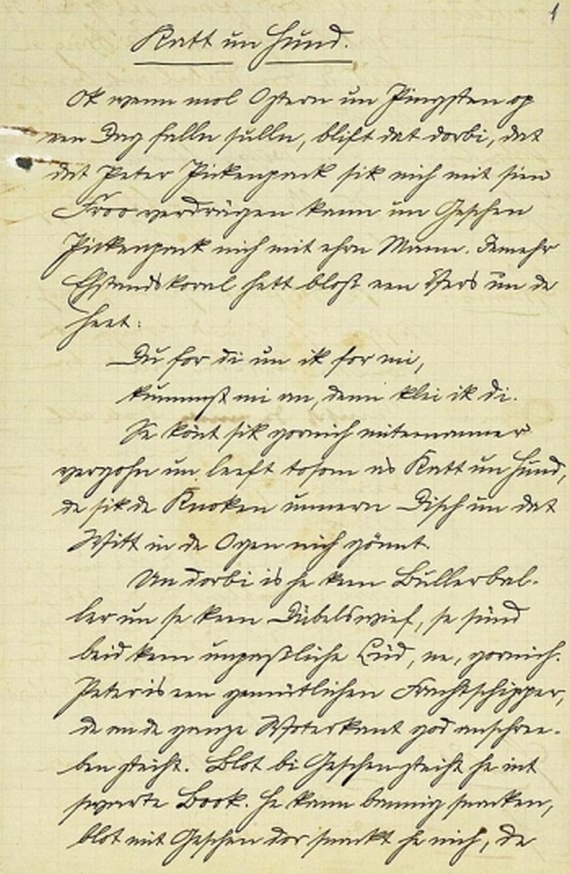 1
Katt un Hund.
Ok wenn mol Ostern un Pingsten op
een Dag falln sulln, blifft dat dorbi, dat
dat Peter Pickenpack sik nich mit sien
Froo verdrägen kann un Geschen
Pickenpack nich mit ehrn Mann. Jemehr
Ehstandskoral hett blost een Vers un de
heet:
Du for di un ik for mi,
kummst mi an, denn klei ik di.
Se könt sik gornich miteenanner
vergohn un leeft tosom as Katt un Hund,
de sik de Knoken unnern Disch un dat
Witt in de Ogen nich gönnt.
Un dorbi is he keen Bullerbal-
ler un se keen Dübelswief, se sünd
beid keen unpaßliche Lüd, ne, gornich.
Peter is een gemütlichen Frachtschipper,
de an de ganze Woterkant god anschree-
ben steiht. Blot bi Geschen steiht he int
swarte Book. He kann bannig snacken,
blot mit Geschen dor snackt he nich, de